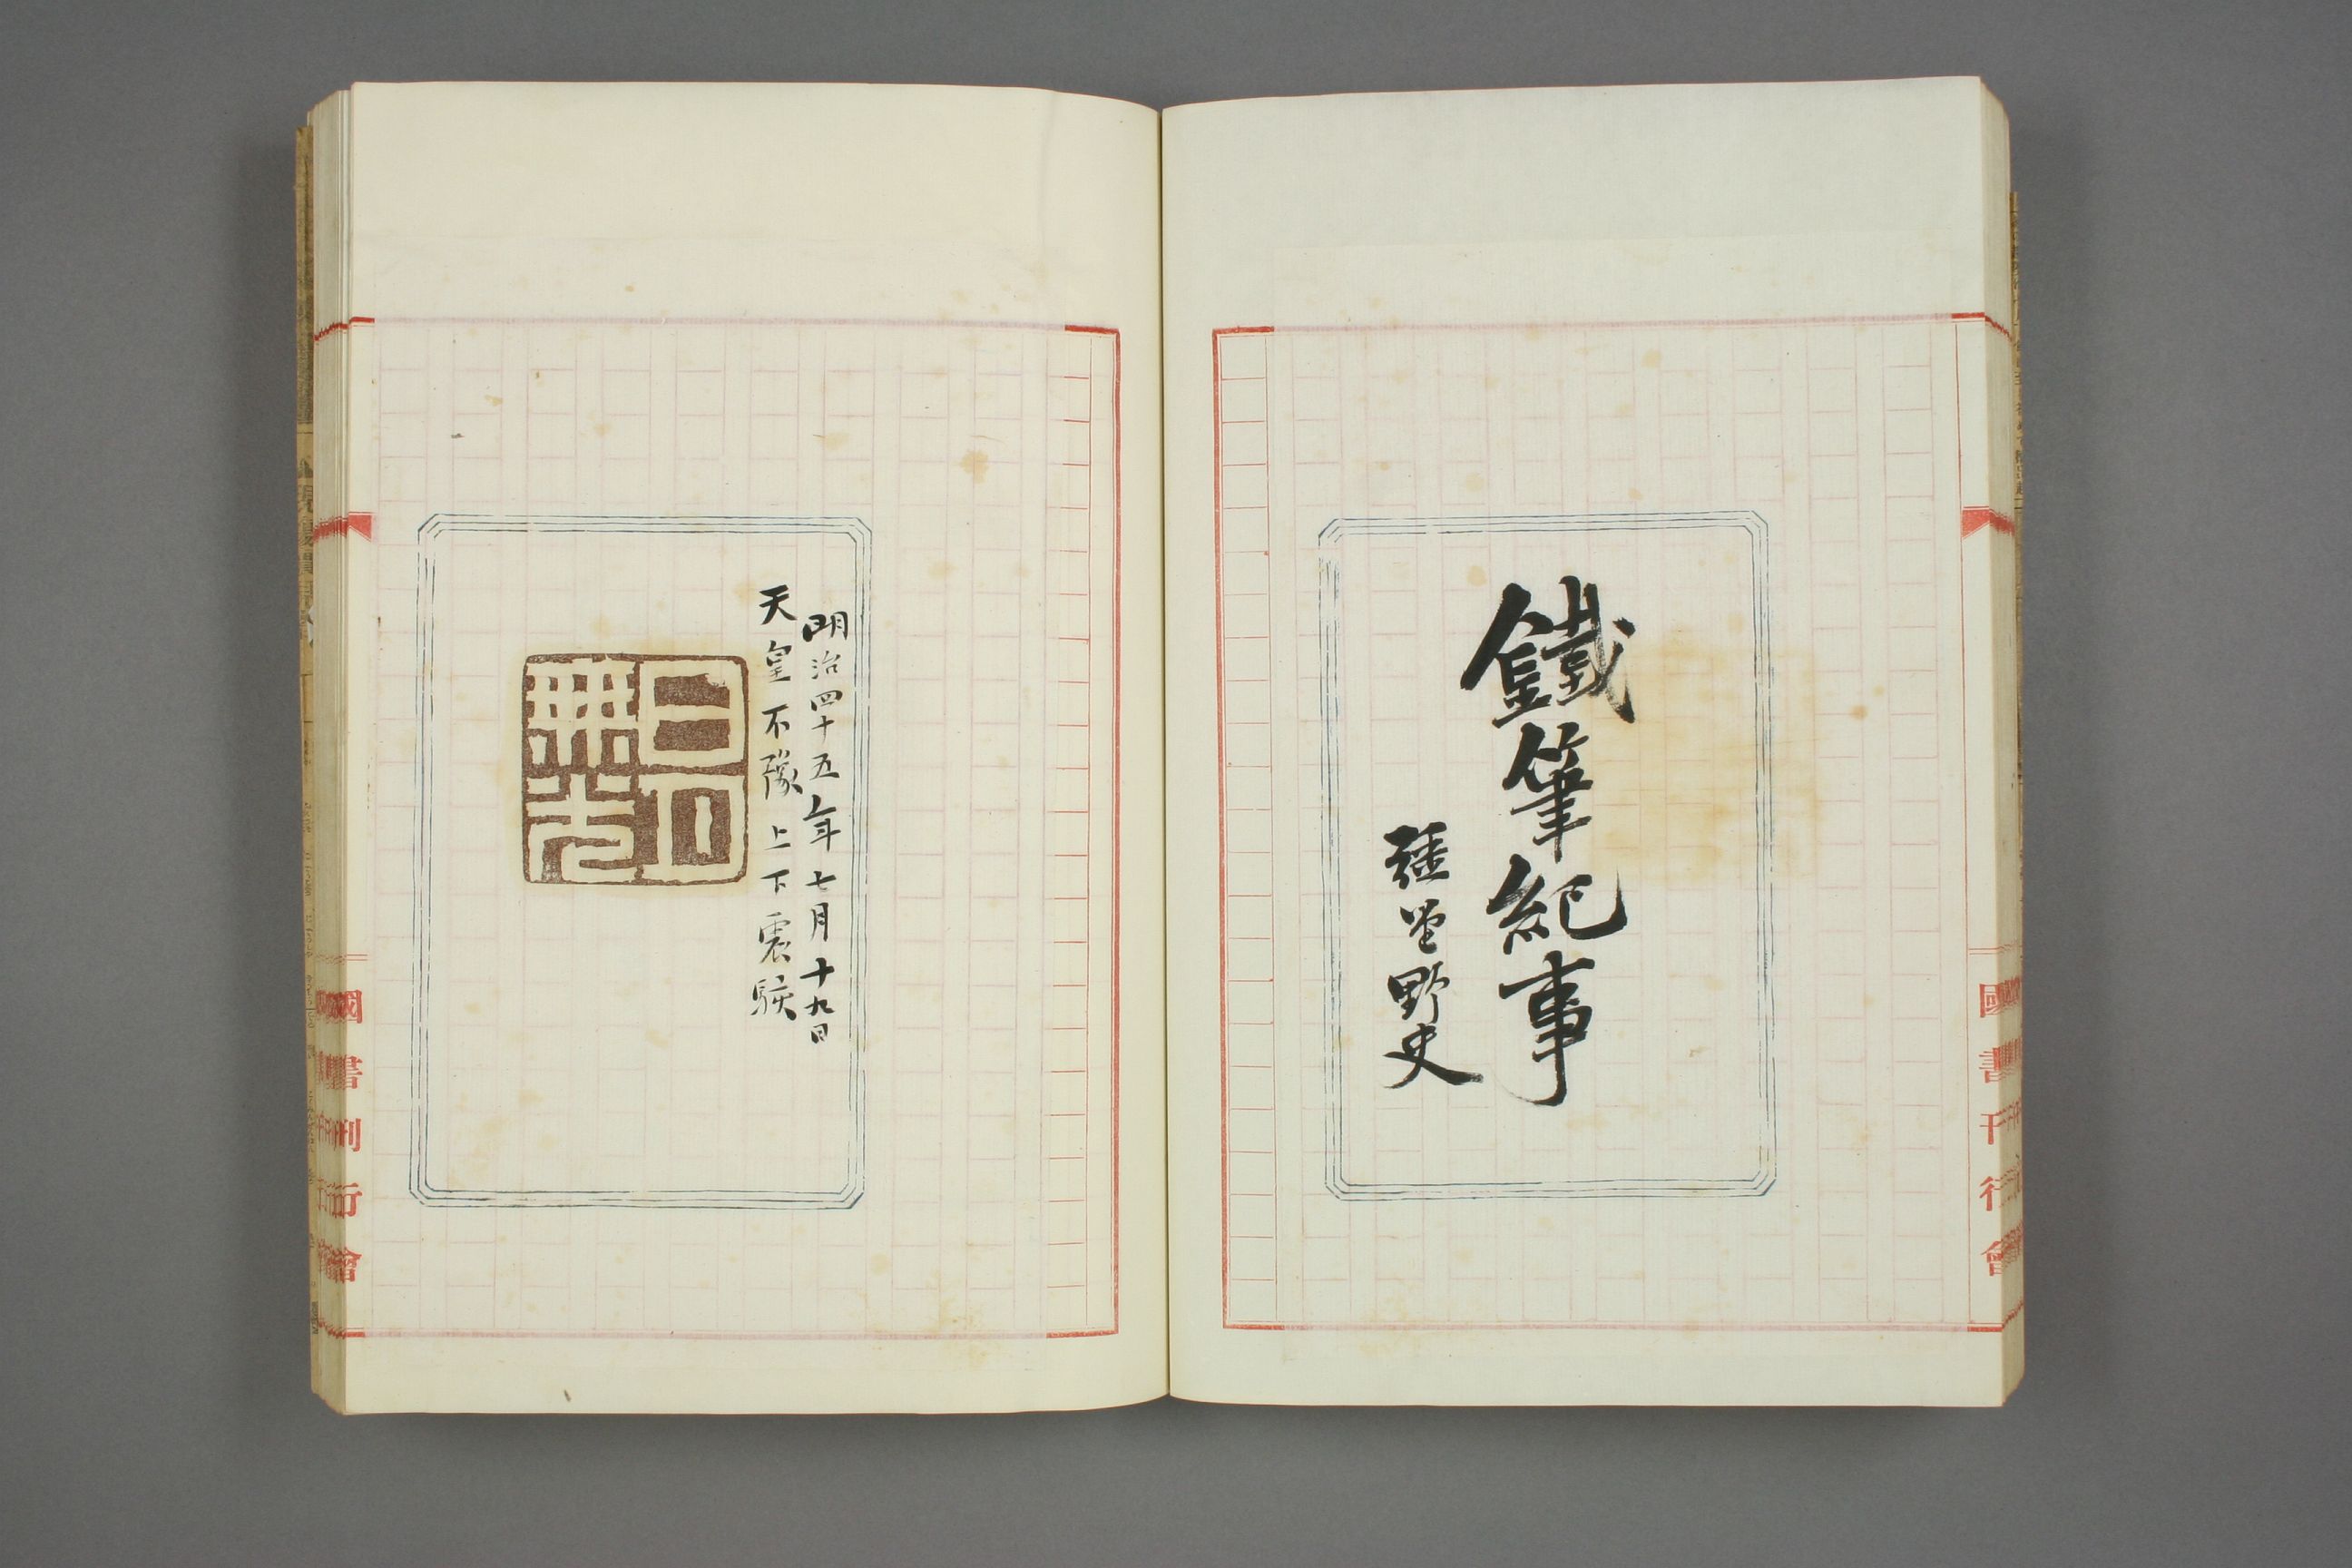 鐵筆紀事
野史
國書刊行會
明治四十五年七月十九日
天皇不豫上下震駭
日月
無光
國書刊行會